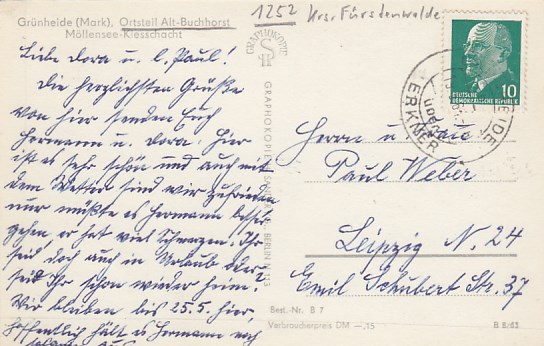 1252 Krs. Fürstenwalde
Grünheide (Mark), Ortsteil Alt-Buchhorst
Möllensee-Kiesschacht
Liebe Dora u. l. Paul!
Die herzlichsten Grüße
von hier senden Euch
Hermann u. Dora. Hier
ist es sehr schön und auch mit
dem Wetter sind wir zufrieden
nur müßte es Hermann besser
gehen, er hat viel Schmerzen. Ihr
seid doch auch in Urlaub oder
seid Ihr schon wieder heim?
Wir bleiben bis 25.5. hier,
hoffentlich hält es Hermann noch
solange aus
GRAPHOKOPIE
BERLIN
10
DEUTSCHE
DEMOKRATISCHE REPUBLIK
ERKNER
Herrn u. Frau
Paul Weber
Leipzig N. 24
Emil Schubert Str. 37
Best.-Nr. B 7
Verbraucherpreis DM -,15
B 8/63